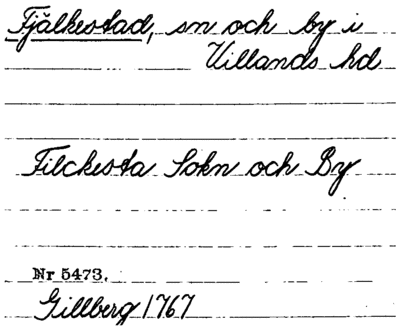 Fjälkestad, sn och by i
Villands hd
Filckesta Sokn och By
Nr 5473.
Gillberg 1767